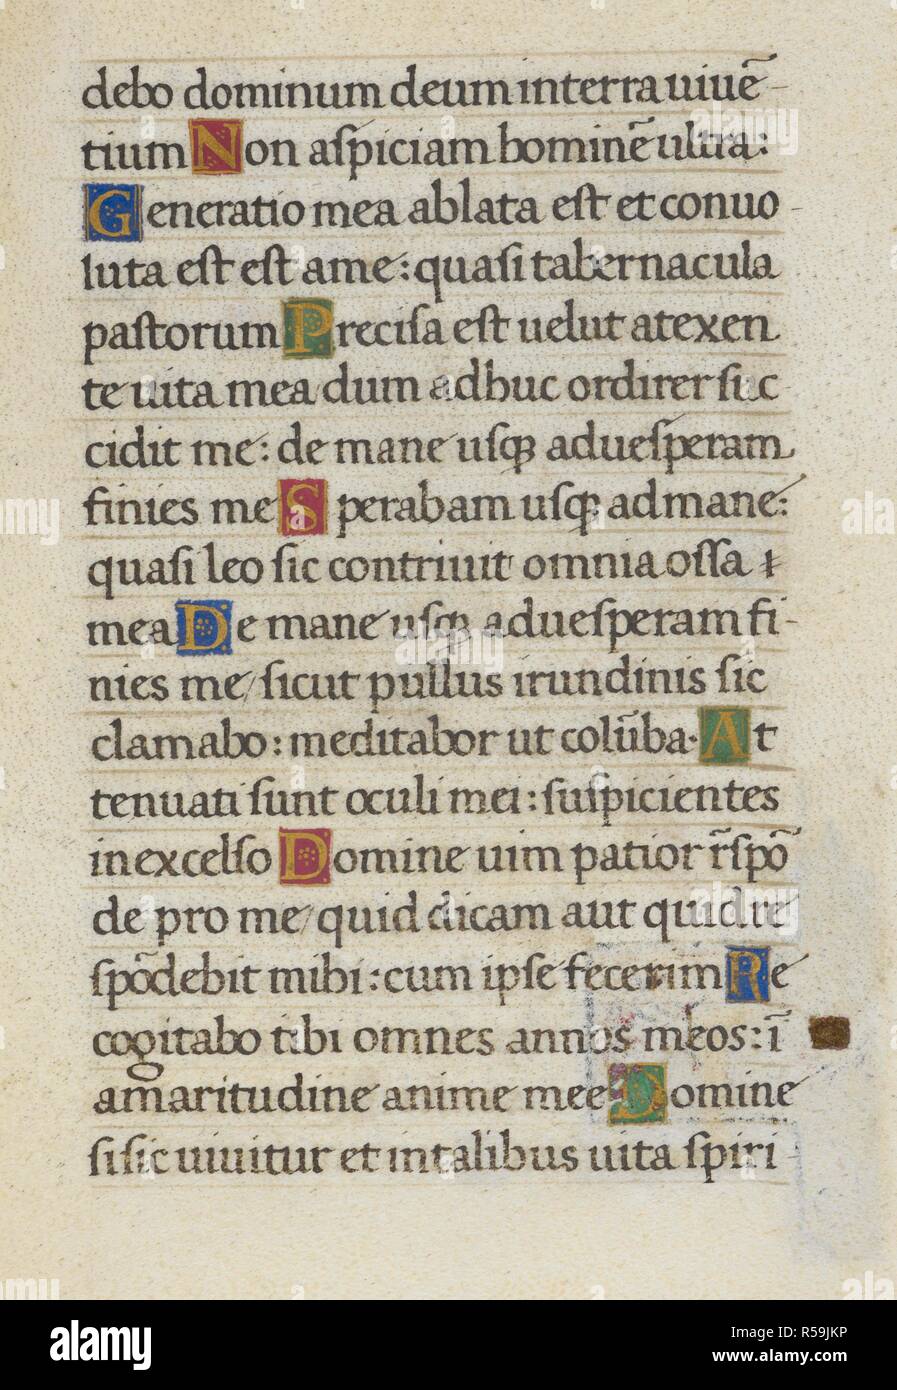 debo dominum deum interra uiuē-
tium Non aſpiciam hominē ultra:
Generatio mea ablata eſt et conuo-
luta eſt eſt ame: quaſi tabernacula
paſtorum Preciſa eſt uelut atexen
te uita mea dum adhuc ordirer ſuc
cidit me: de mane uſqꝫ adueſperam
finies me Sperabam uſqꝫ ad mane:
quaſi leo ſic contriuit omnia oſſa
mea De mane uſqꝫ adueſperam fi-
nies me/ ſicut pullus irundinis ſic
clamabo: meditabor ut colūba. At
tenuati ſunt oculi mei: ſuſpicientes
in excelſo Domine uim patior r̄ſpō
de pro me/ quid dicam aut quid re
ſpōdebit mihi: cum ipſe fecerim Re
cogitabo tibi omnes annos meos: ī
amaritudine anime mee Domine
ſi ſic uiuitur et in talibus uita ſpiri-
alamy
Image ID: R59JKP
www.alamy.com